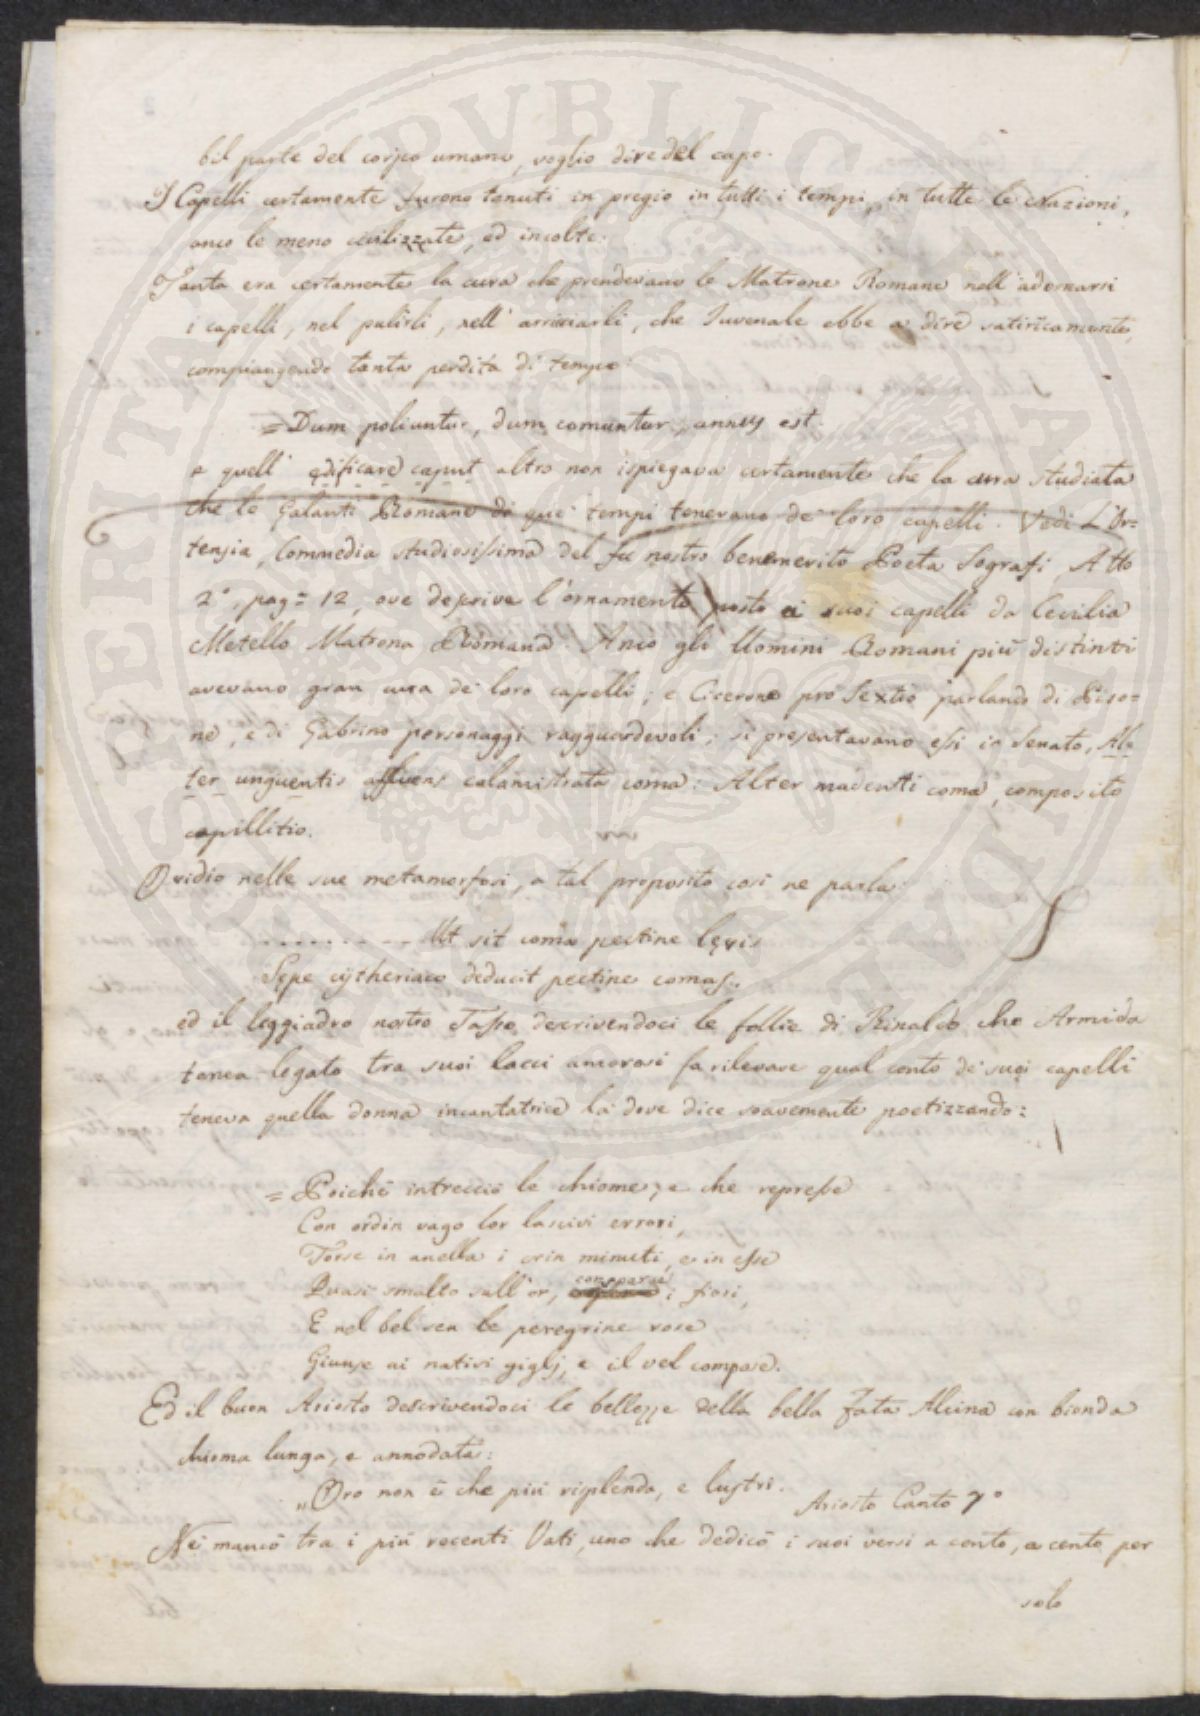 bil parte del corpo umano, voglio dire del capo.
I Capelli certamente furono tenuti in pregio in tutti i tempi, in tutte le Nazioni,
anco le meno civilizzate, ed incolte.
Tanta era certamente la cura che prendevano le Matrone Romane nell'adornarsi
i capelli, nel pulirli, nell'arricciarli, che Iuvenale ebbe a dire satiricamente,
compiangendo tanta perdita di tempo:
= Dum poliuntur, dum comuntur, annus est.
e quell' edificare caput altro non ispiegava certamente che la cura studiata
che le Galanti Romane di que' tempi tenevano de' loro capelli. Vedi L'Or=
tensia, Commedia studiosissima del fu nostro benemerito Poeta Sografi, Atto
2°, pag= 12, ove descrive l'ornamento posto ai suoi capelli da Cecilia
Metello Matrona Romana. Anco gli Uomini Romani più distinti
avevano gran cura de' loro capelli; e Cicerone pro Sextio parlando di Piso=
ne, e di Gabrino personaggi ragguardevoli, si presentavano essi in Senato, Al=
ter unguentis affluens calamistrata coma: Alter madenti coma, composito
capillitio.
Ovidio nelle sue metamorfosi, a tal proposito così ne parla:
. . . . . . . . Ut sit coma pectine levis
Sepe cijtheriaco deducit pectine comas.
ed il leggiadro nostro Tasso descrivendoci le follie di Rinaldo che Armida
tenea legato tra suoi lacci amorosi fa rilevare qual conto de' suoi capelli
teneva quella donna incantatrice là dove dice soavemente poetizzando:
= Poichè intrecciò le chiome, e che represse
Con ordin vago lor lascivi errori,
Torse in anella i crin minuti, e in esse
Quasi smalto sull'or, comparse i fiori,
E nel bel sen le peregrine rose
Giunse ai nativi giglj, e il vel compose.
Ed il buon Ariosto descrivendoci le bellezze della bella fata Alcina con bionda
chioma lunga, e annodata:
„ Oro non è che più risplenda, e lustri.
Ariosto Canto 7°
Nè mancò tra i più recenti Vati, uno che dedicò i suoi versi a cento, a cento per
solo
SEVERITATI PUBLICAE DAMNA